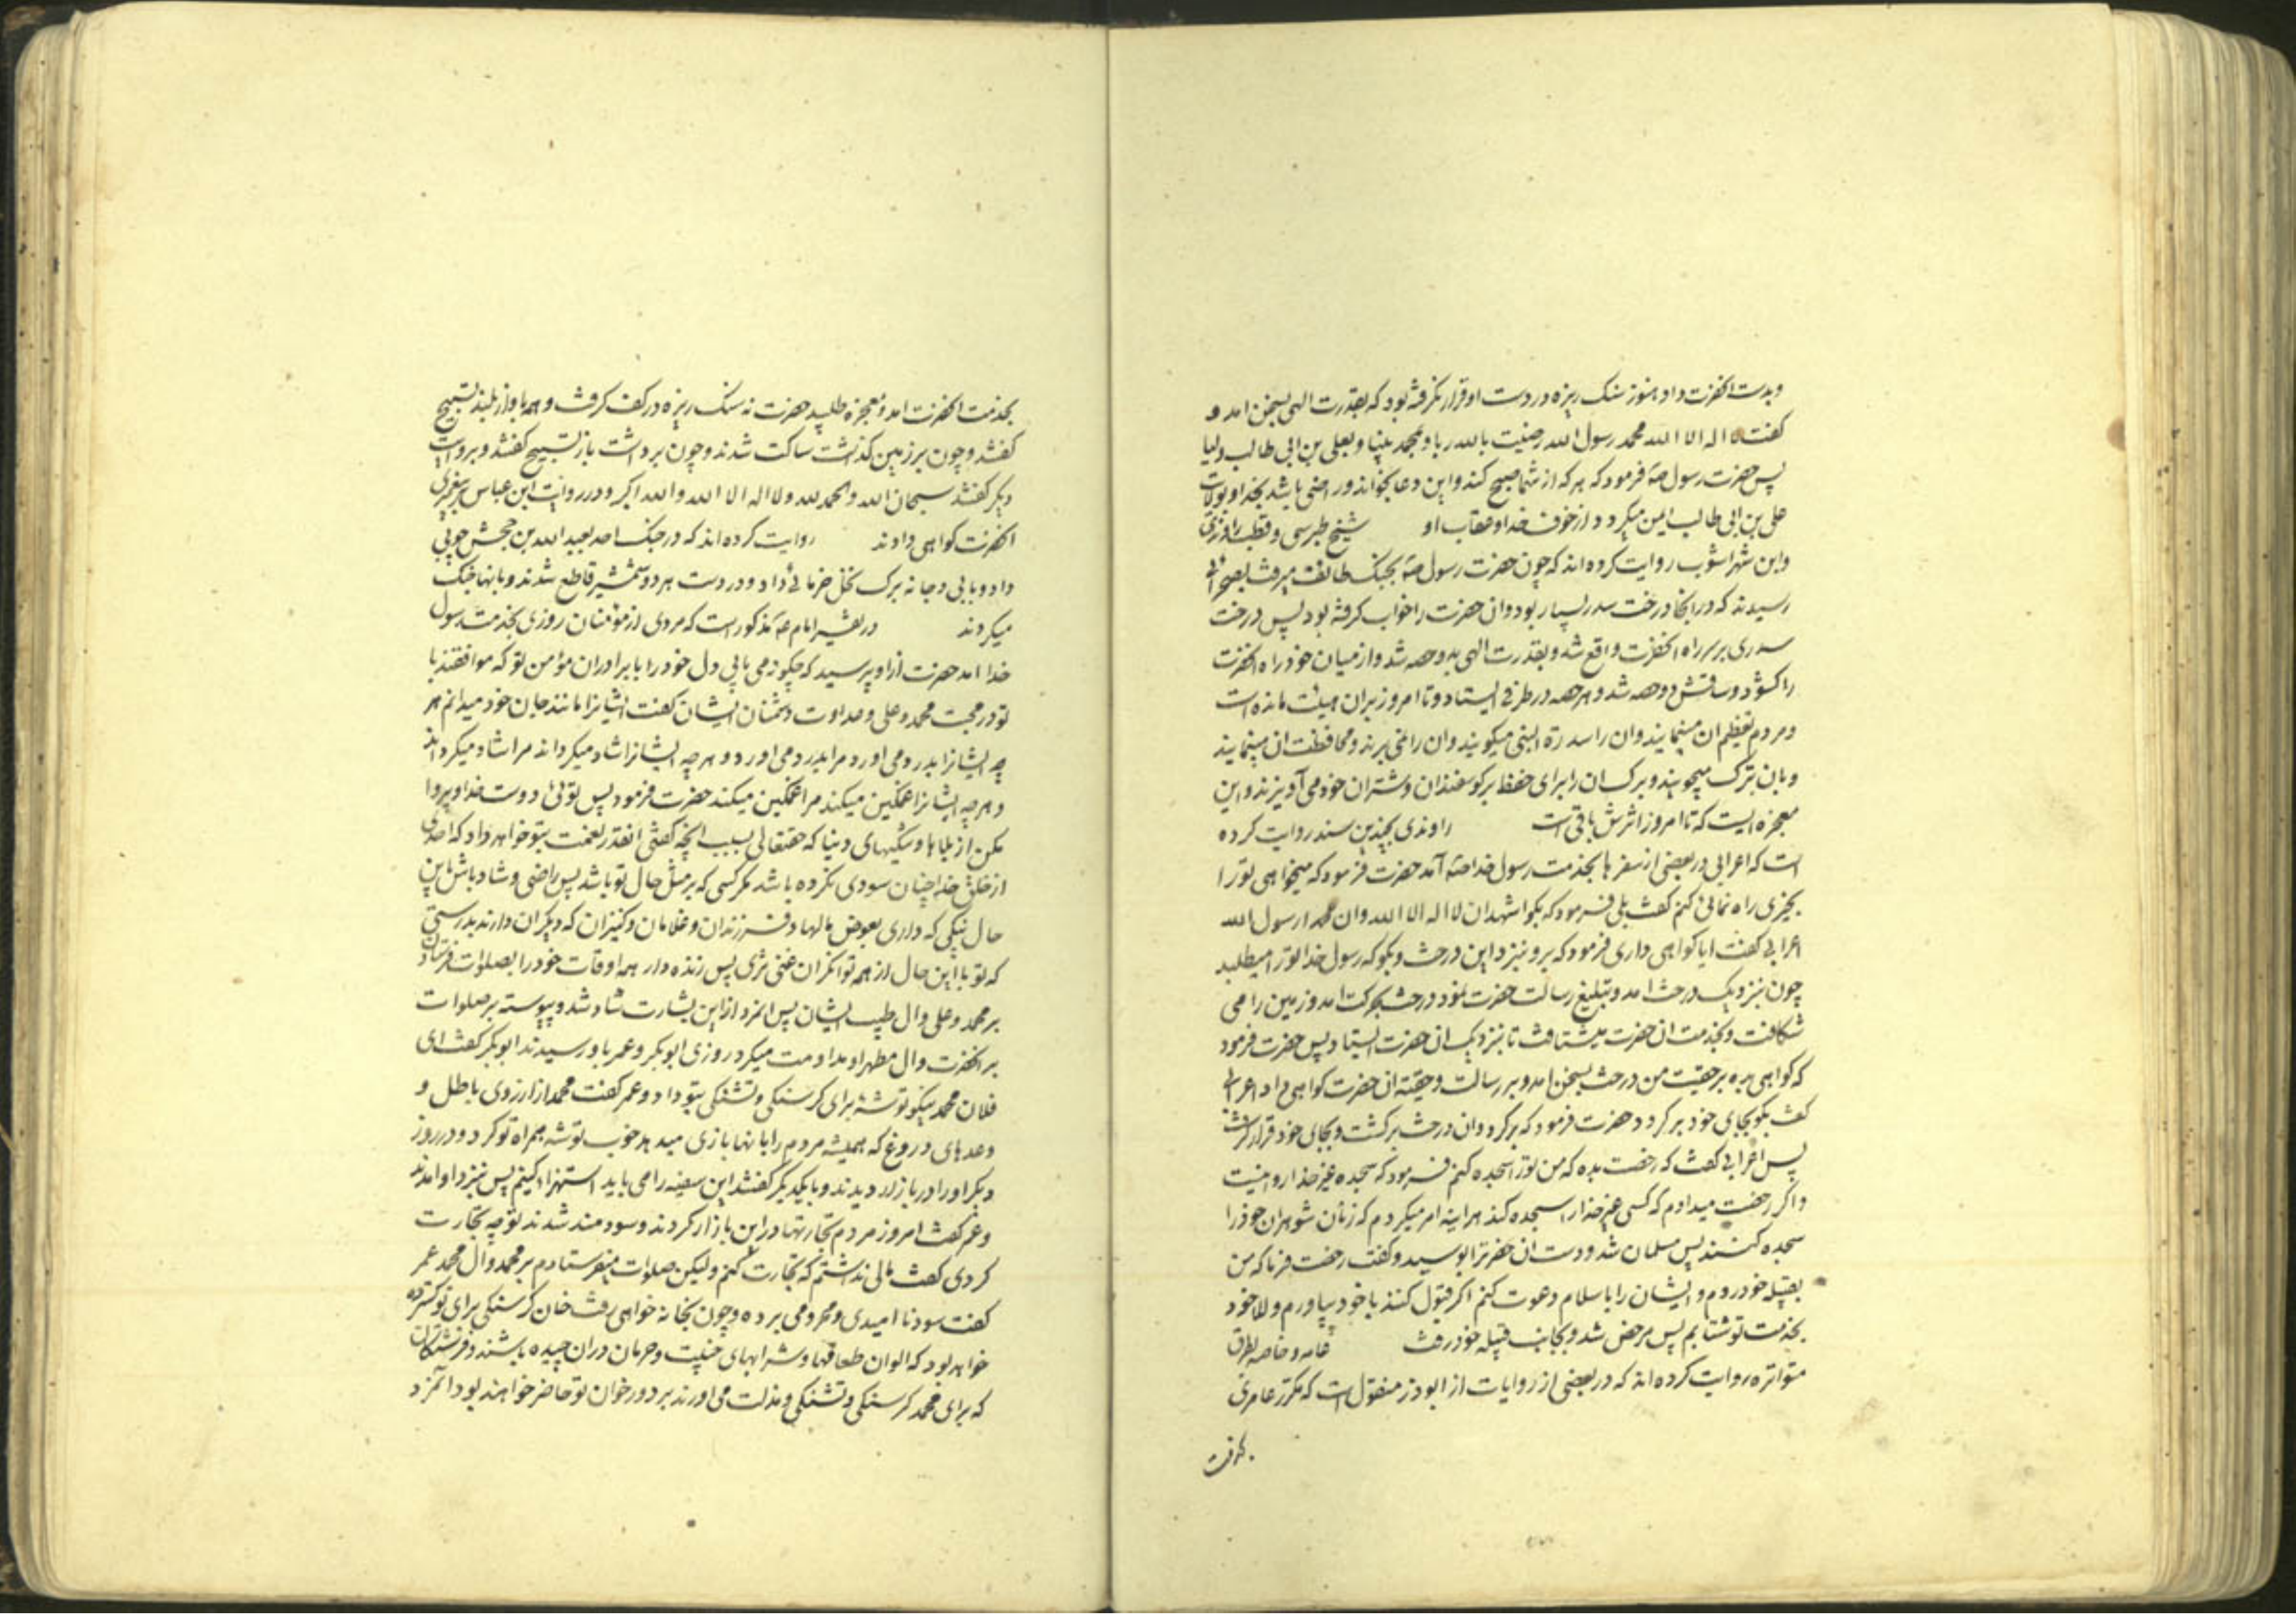 وبدست انحضرت داد هنوز سنک ریزه در دست او قرار نکرفته بود که بقدرت الهی بسخن امد و
کفت لا اله الا الله محمد رسول الله رضیت بالله ربا و بمحمد نبیا و بعلی بن ابی طالب ولیا
پس حضرت رسول صه فرمود که هر که از شما صبح کند و این دعا بخواند و راضی باشد بخدا و بولایت
علی بن ابی طالب ایمن میکردد از خوف خدا و عقاب او شیخ طبرسی و قطب راوندی
وابن شهراشوب روایت کرده اند که چون حضرت رسول صه بجنک طائف میرفت بصحرائی
رسیدند که در انجا درخت سدر بسیار بود وان حضرت را خواب کرفته بود پس درخت
سدری بر سر راه انحضرت واقع شد و بقدرت الهی بدو حصه شد و از میان خود راه انحضرت
را کشود و ساقش دو حصه شد و هر حصه در طرفی ایستاد و تا امروز بران هیئت مانده است
ومردم تعظیم ان مینمایند وان را سدرة النبی میکویند وان را نمی برند و محافظت ان مینمایند
وبان تبرک میجویند و برک ان را برای حفظ بر کوسفندان و شتران خود می آویزند و این
معجزه ایست که تا امروز اثرش باقی است راوندی بچندین سند روایت کرده
است که اعرابی در بعضی از سفرها بخدمت رسول خدا صه آمد حضرت فرمود که میخواهی تو را
بچیزی راه نمائی کنم کفت بلی فرمود که بکو اشهد ان لا اله الا الله وان محمدا رسول الله
اعرابی کفت ایا کواهی داری فرمود که برو بنزد این درخت و بکو که رسول خدا تو را میطلبد
چون بنزدیک درخت امد و تبلیغ رسالت حضرت نمود درخت بحرکت امد و زمین را می
شکافت و بخدمت ان حضرت میشتافت تا بنزدیک ان حضرت ایستاد پس حضرت فرمود
که کواهی بده بر حقیت من درخت بسخن امد و بر رسالت و حقیة ان حضرت کواهی داد اعرابی
کفت بکو بجای خود برکردد حضرت فرمود که برکرد وان درخت برکشت و بجای خود قرار کرفت
پس اعرابی کفت که رخصت بده که من تو را سجده کنم فرمود که سجده غیر خدا روا نیست
واکر رخصت میدادم که کسی غیر خدا را سجده کند هراینه امر میکردم که زنان شوهران خود را
سجده کنند پس مسلمان شد و دست ان حضرترا بوسید و کفت رخصت فرما که من
بقبیله خود روم و ایشان را باسلام دعوت کنم اکر قبول کنند با خود بیاورم والا خود
بخدمت تو شتابم پس مرخص شد و بجانب قبیله خود رفت عامه و خاصه بطرق
متواتره روایت کرده اند که در بعضی از روایات از ابوذر منقول است که مکرز عامری
بخدمت انحضرت امد و معجزه طلبید حضرت نه سنک ریزه در کف کرفت و همه باواز بلند تسبیح
کفتند و چون بر زمین کذاشت ساکت شدند و چون برداشت باز تسبیح کفتند و بروایت
دیکر کفتند سبحان الله والحمد لله ولا اله الا الله والله اکبر و در روایت ابن عباس بر پیغمبری
انحضرت کواهی دادند روایت کرده اند که در جنک احد بعبدالله بن جحش چوبی
داد و بابی دجانه برک نخل خرمائی داد و در دست هر دو شمشیر قاطع شدند و بانها جنک
میکردند در تفسیر امام عه مذکور است که مردی از مؤمنان روزی بخدمت رسول
خدا امد حضرت از او پرسید که چکونه می یابی دل خود را با برادران مؤمن تو که موافقند با
تو در محبت محمد و علی و عداوت دشمنان ایشان کفت ایشانرا مانند جان خود میدانم هر
چه ایشانرا بدرد می اورد مرا بدرد می اورد و هر چه ایشانرا شاد میکرداند مرا شاد میکرداند
و هر چه ایشانرا غمکین میکند مرا غمکین میکند حضرت فرمود پس توئی دوست خدا و پروا
مکن از بلاها و تنکیهای دنیا که حقتعالی بسبب انچه کفتی انقدر نعمت بتو خواهد داد که احدی
از خلق خدا چنان سودی نکرده باشد مکر کسی که بر مثل حال تو باشد پس راضی و شاد باش باین
حال نیکی که داری بعوض مالها و فرزندان و غلامان و کنیزان که دیکران دارند بدرستی
که تو با این حال از همه توانکران غنی تری پس زنده دار همه اوقات خود را بصلوات فرستادن
بر محمد و علی وال طیب ایشان پس انمرد از این بشارت شاد شد و پیوسته بر صلوات
بر انحضرت وال مطهر او مداومت میکرد روزی ابوبکر و عمر باو رسیدند ابوبکر کفت ای
فلان محمد نیکو توشهٔ برای کرسنکی و تشنکی بتو داد و عمر کفت محمد از ارزوی باطل و
وعدهای دروغ که همیشه مردم را بانها بازی میدهد خوب توشه همراه تو کرد و در روز
دیکر او را در بازار دیدند و با یکدیکر کفتند این سفیه را می باید استهزا کنیم پس بنزد او امدند
وعمر کفت امروز مردم تجارتها در این بازار کردند و سودمند شدند تو چه تجارت
کردی کفت مالی نداشتم که تجارت کنم ولیکن صلوات میفرستادم بر محمد وآل محمد عمر
کفت سود نا امیدی و محرومی برده و چون بخانه خواهی رفت خان کرسنکی برای تو کسترده
خواهد بود که الوان طعامها و شرابهای خیبت و حرمان دران چیده باشند و فرشتکان
که برای محمد کرسنکی و تشنکی و مذلت می اورند بر دور خوان تو حاضر خواهند بود انمرد